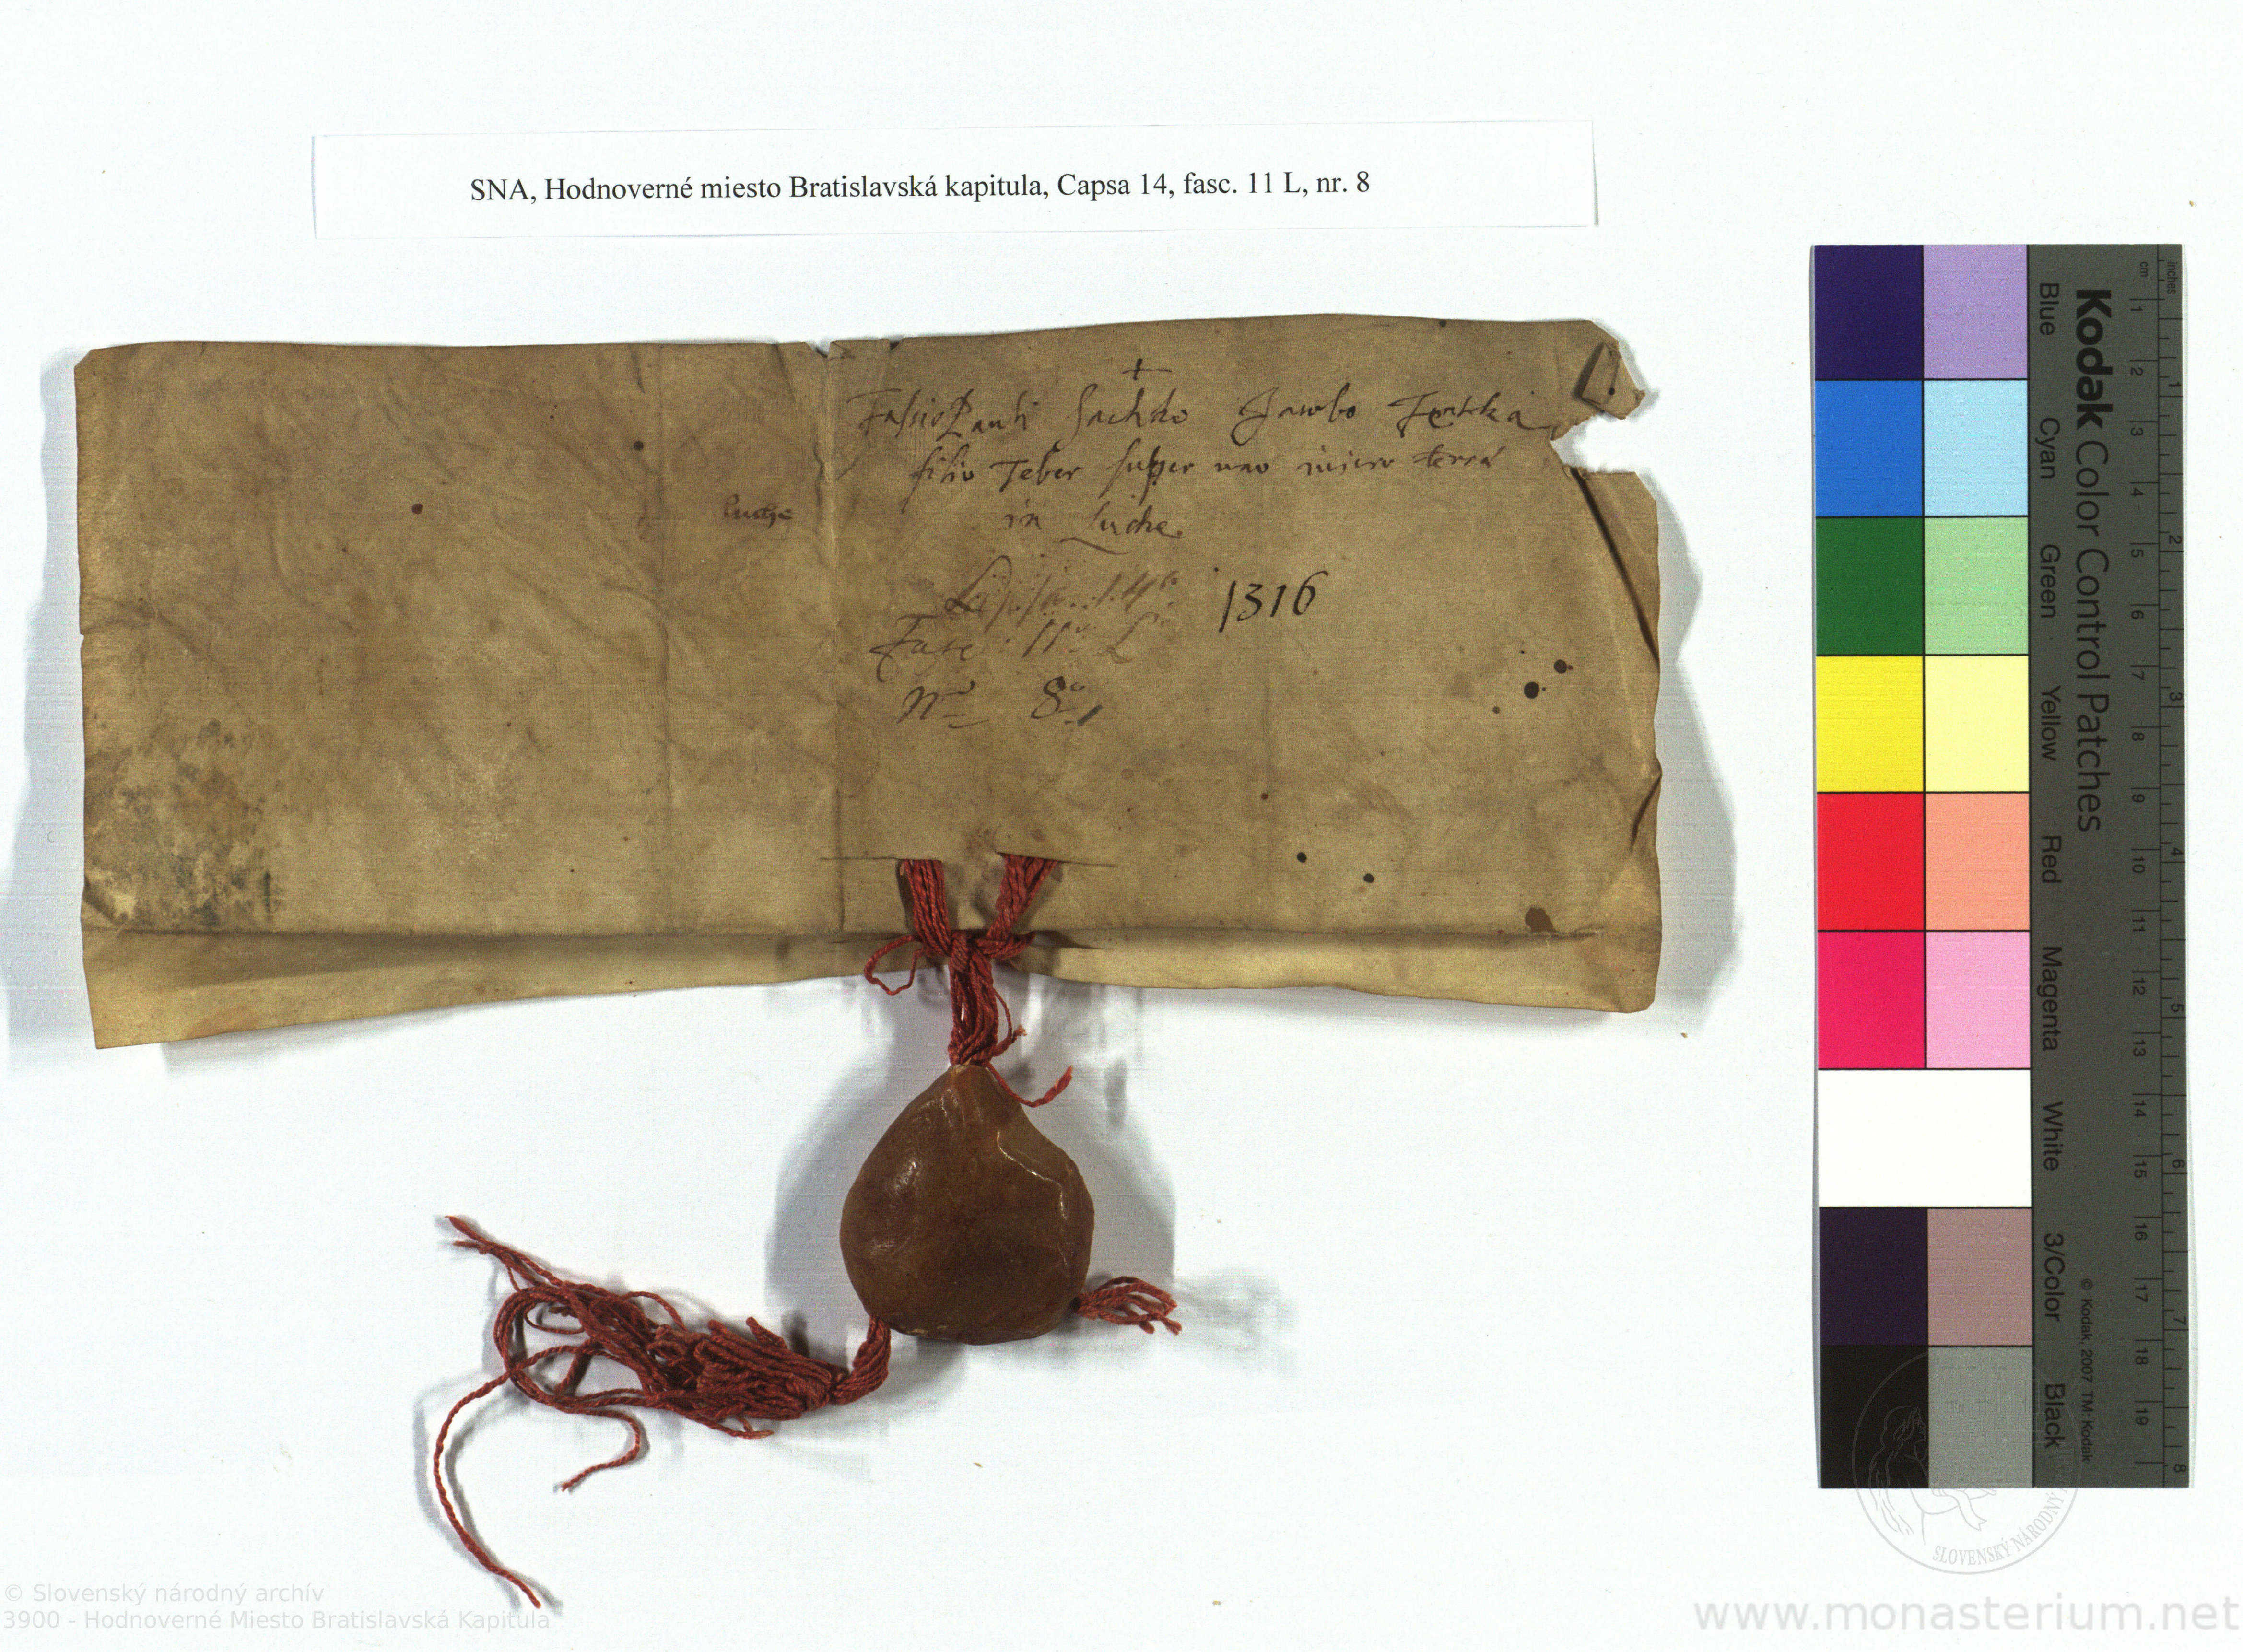 SNA, Hodnoverné miesto Bratislavská kapitula, Capsa 14, fasc. 11 L, nr. 8
Fassio Pauli Sachko Jacobo
filio Teber super uno terra
in Luche
Capsa. 14a
1316
Fasc: 11o L
No 8o
Kodak Color Control Patches
© Kodak, 2007 TM: Kodak
Blue Cyan Green Yellow Red Magenta White 3/Color Black
cm 1 2 3 4 5 6 7 8 9 10 11 12 13 14 15 16 17 18 19
inches 1 2 3 4 5 6 7 8
SLOVENSKÝ NÁRODNÝ
© Slovenský národný archív
3900 - Hodnoverné Miesto Bratislavská Kapitula
www.monasterium.net